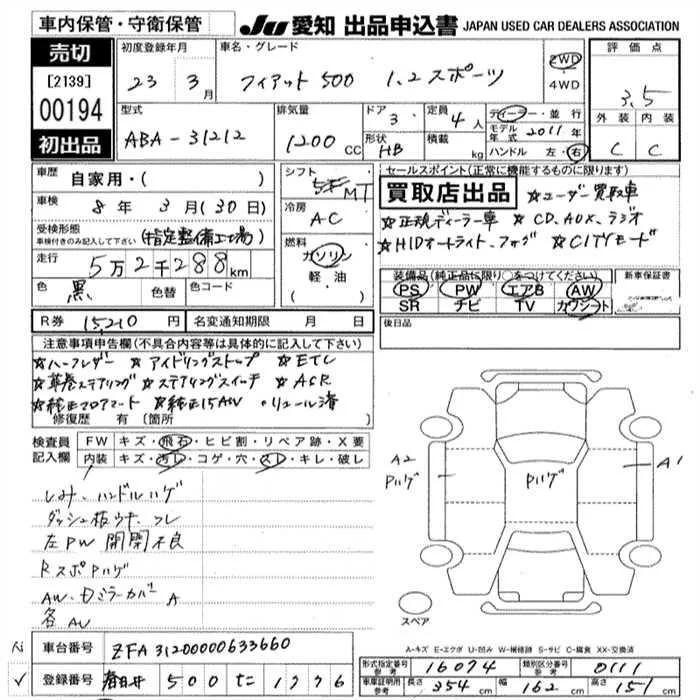 車内保管・守衛保管
JU 愛知 出品申込書 JAPAN USED CAR DEALERS ASSOCIATION
売切
[2139]
00194
初出品
初度登録年月
23 3月
車名・グレード
フィアット500 1.2スポーツ
2WD
4WD
評価点
3.5
外装 内装
C C
型式
ABA-31212
排気量
1200 CC
ドア 3.
形状 HB
定員 4人
積載 kg
ディーラー・並行
モデル年式 2011年
ハンドル 左・右
車歴 自家用・( )
車検 8年 3月(30日)
受検形態
車検付きのみ記入して下さい
(指定整備工場)
走行 5万2千288km
色 黒
色替
色コード
シフト
MT
冷房
AC
燃料
ガソリン
軽・油
( )
セールスポイント(正常に機能するものに限ります)
買取店出品 ☆ユーザー買取車
☆正規ディーラー車 ☆CD.AUX.ラジオ
☆HIDオートライト.フォグ ☆CITYモード
装備品(純正品に限り〇をつけてください)
PS PW エアB AW
SR ナビ TV カワシート
新車保証書
R券 15210円
名変通知期限 月 日
後日品
注意事項申告欄(不具合内容等は具体的に記入して下さい)
☆ハーフレザー ☆アイドリングストップ ☆ETC
☆革巻ステアリング ☆ステアリングスイッチ ☆ASR
☆純正フロアマート ☆純正15AW ・リュール済
修復歴 有 〔箇所
検査員記入欄
FW キズ・飛石・ヒビ割・リペア跡・X要
内装 キズ・汚レ・コゲ・穴・スレ・キレ・破レ
シミ.ハンドルハゲ
ダッシュ板ウキ.スレ
左PW 開閉不良
RスポPハゲ
AW.ドミラーカバー A
各AU
A2
Pハゲ
Pハゲ
A1
スペア
A-キズ E-エクボ U-凹み W-補修跡 S-サビ C-腐食 XX-交換済
車台番号 ZFA31200000633660
登録番号 春日井 500 た 1276
形式指定番号 参考 16074
類別区分番号 参考 0111
車庫証明用 参考 長さ 354cm 幅 162cm 高さ 151cm